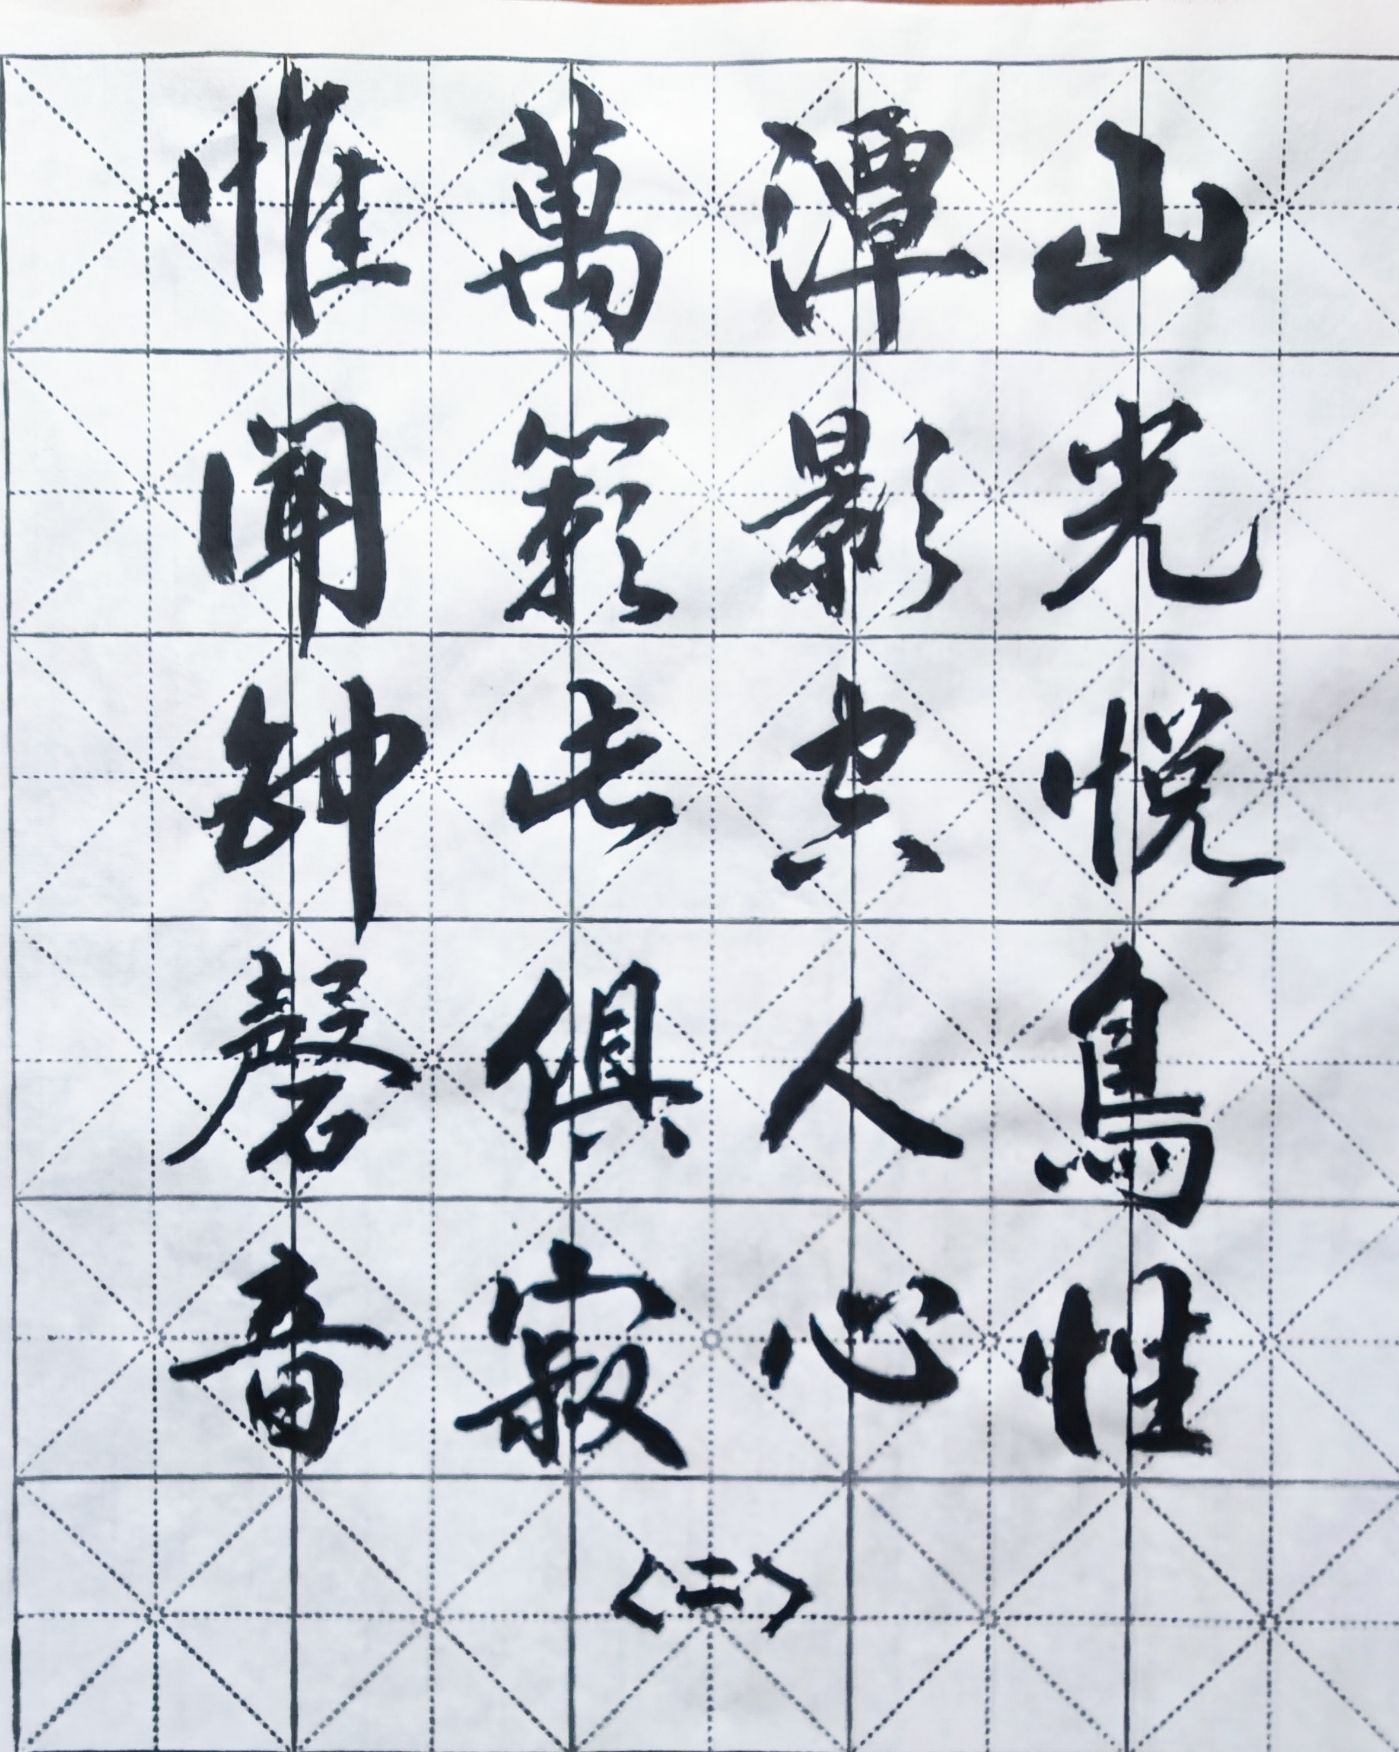 山光悦鳥性
潭影空人心
萬籁此俱寂
惟闻钟磬音
（二）